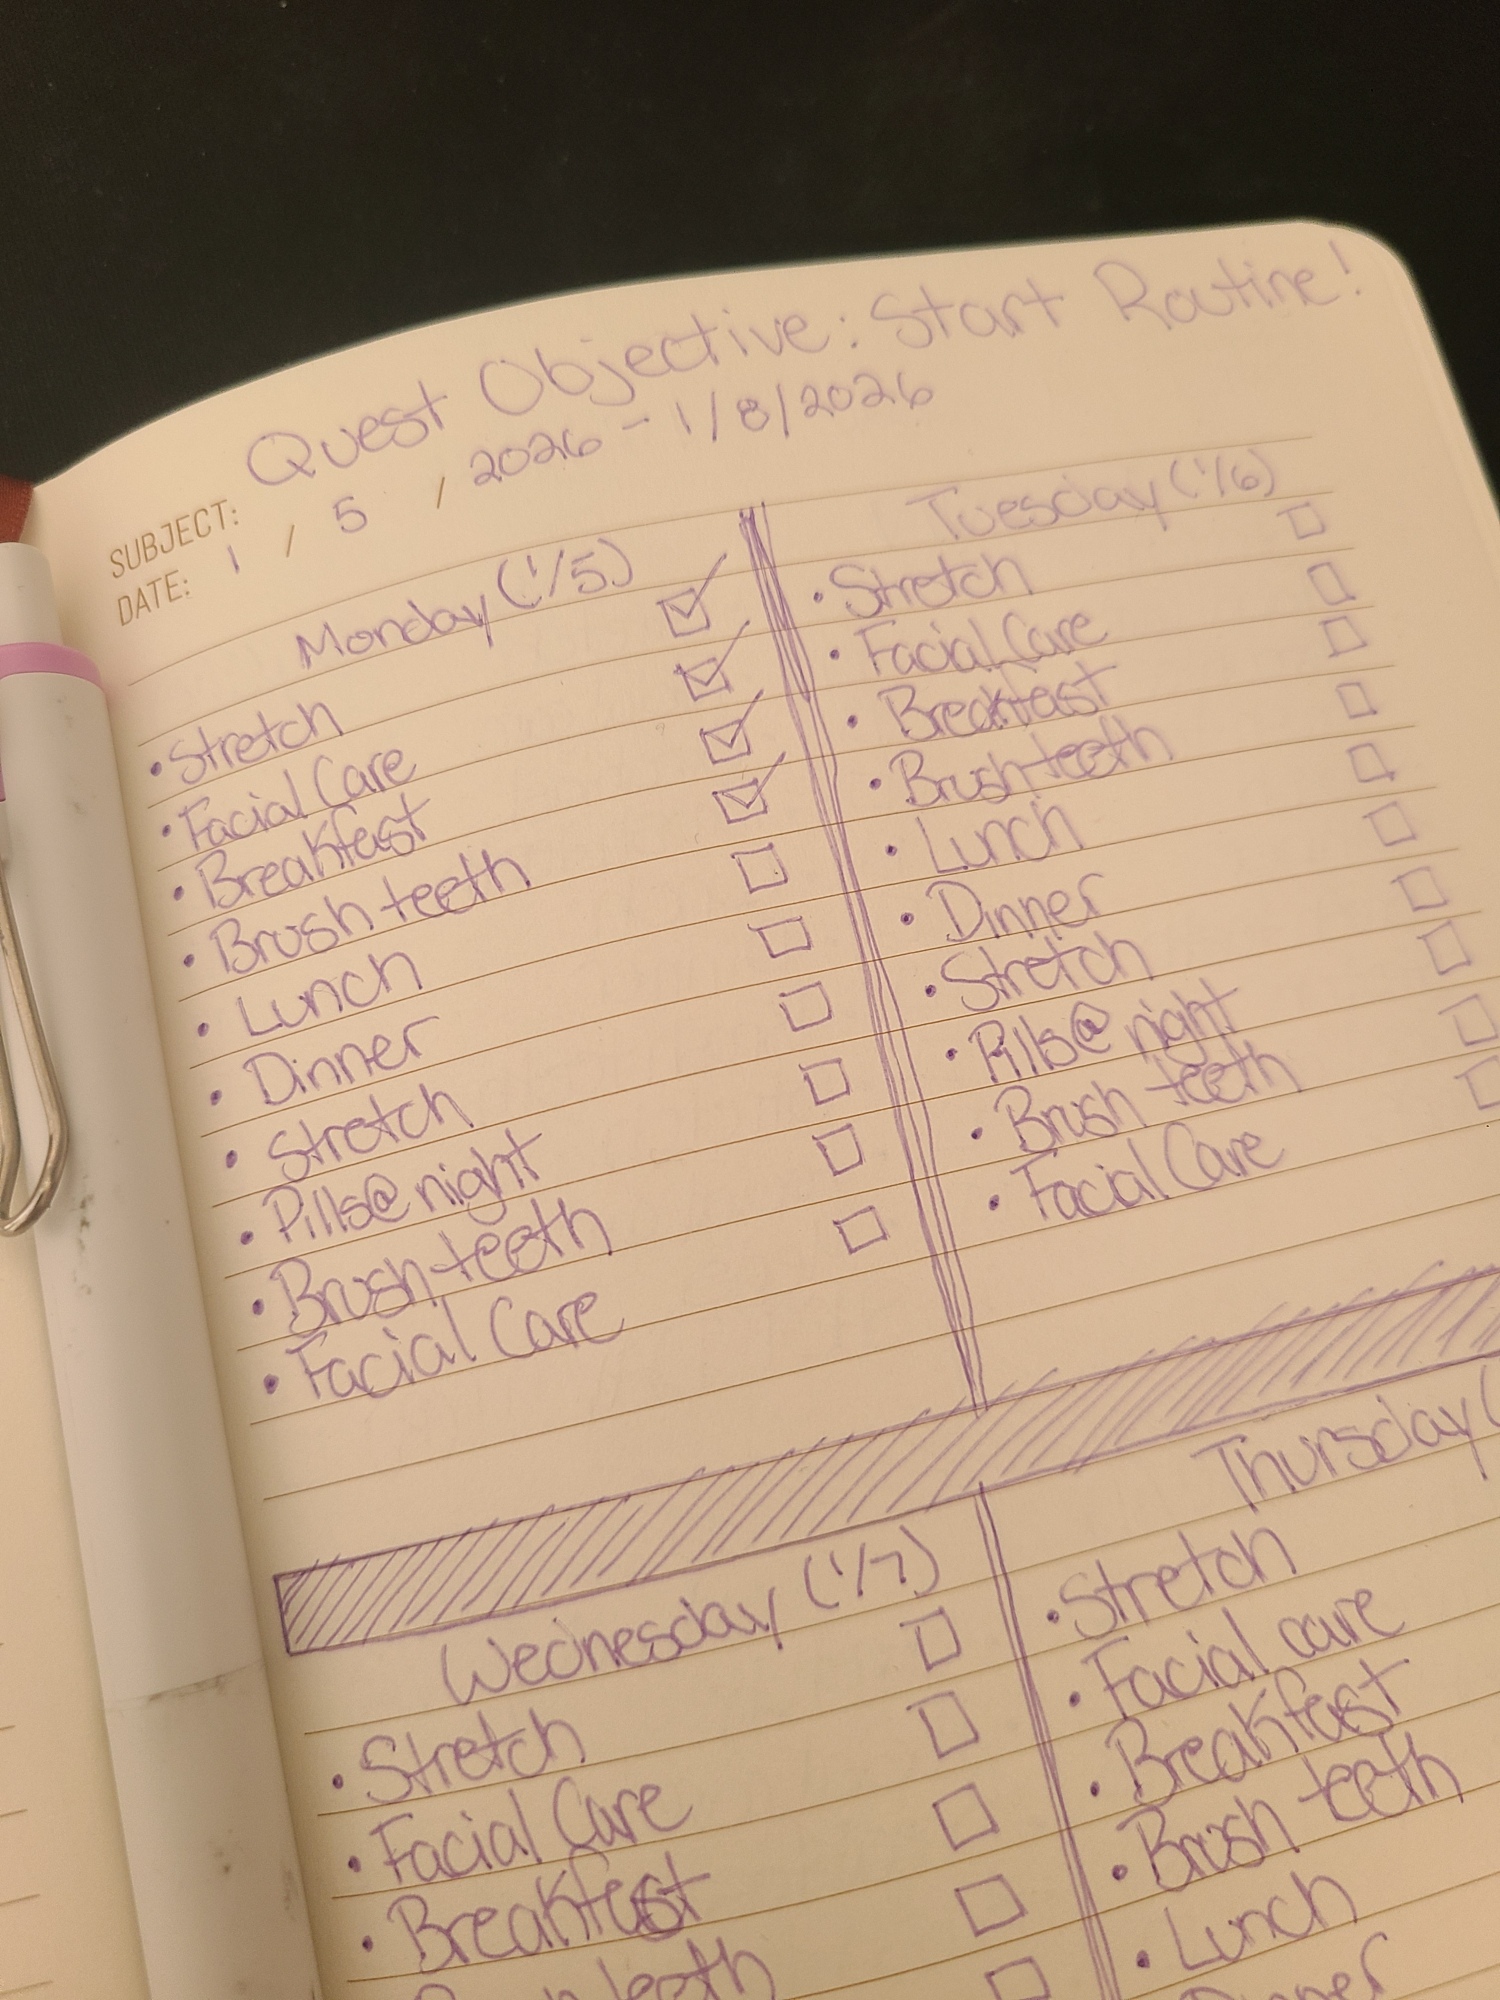 SUBJECT: Quest Objective: Start Routine!
DATE: 1 / 5 / 2026 - 1/8/2026
Monday (1/5)
• Stretch
• Facial Care
• Breakfast
• Brush teeth
• Lunch
• Dinner
• Stretch
• Pills@night
• Brush teeth
• Facial Care
Tuesday (1/6)
• Stretch
• Facial Care
• Breakfast
• Brush teeth
• Lunch
• Dinner
• Stretch
• Pills@night
• Brush teeth
• Facial Care
Wednesday (1/7)
• Stretch
• Facial Care
• Breakfast
Brush teeth
Thursday (
• Stretch
• Facial care
• Breakfast
• Brush teeth
• Lunch
Dinner